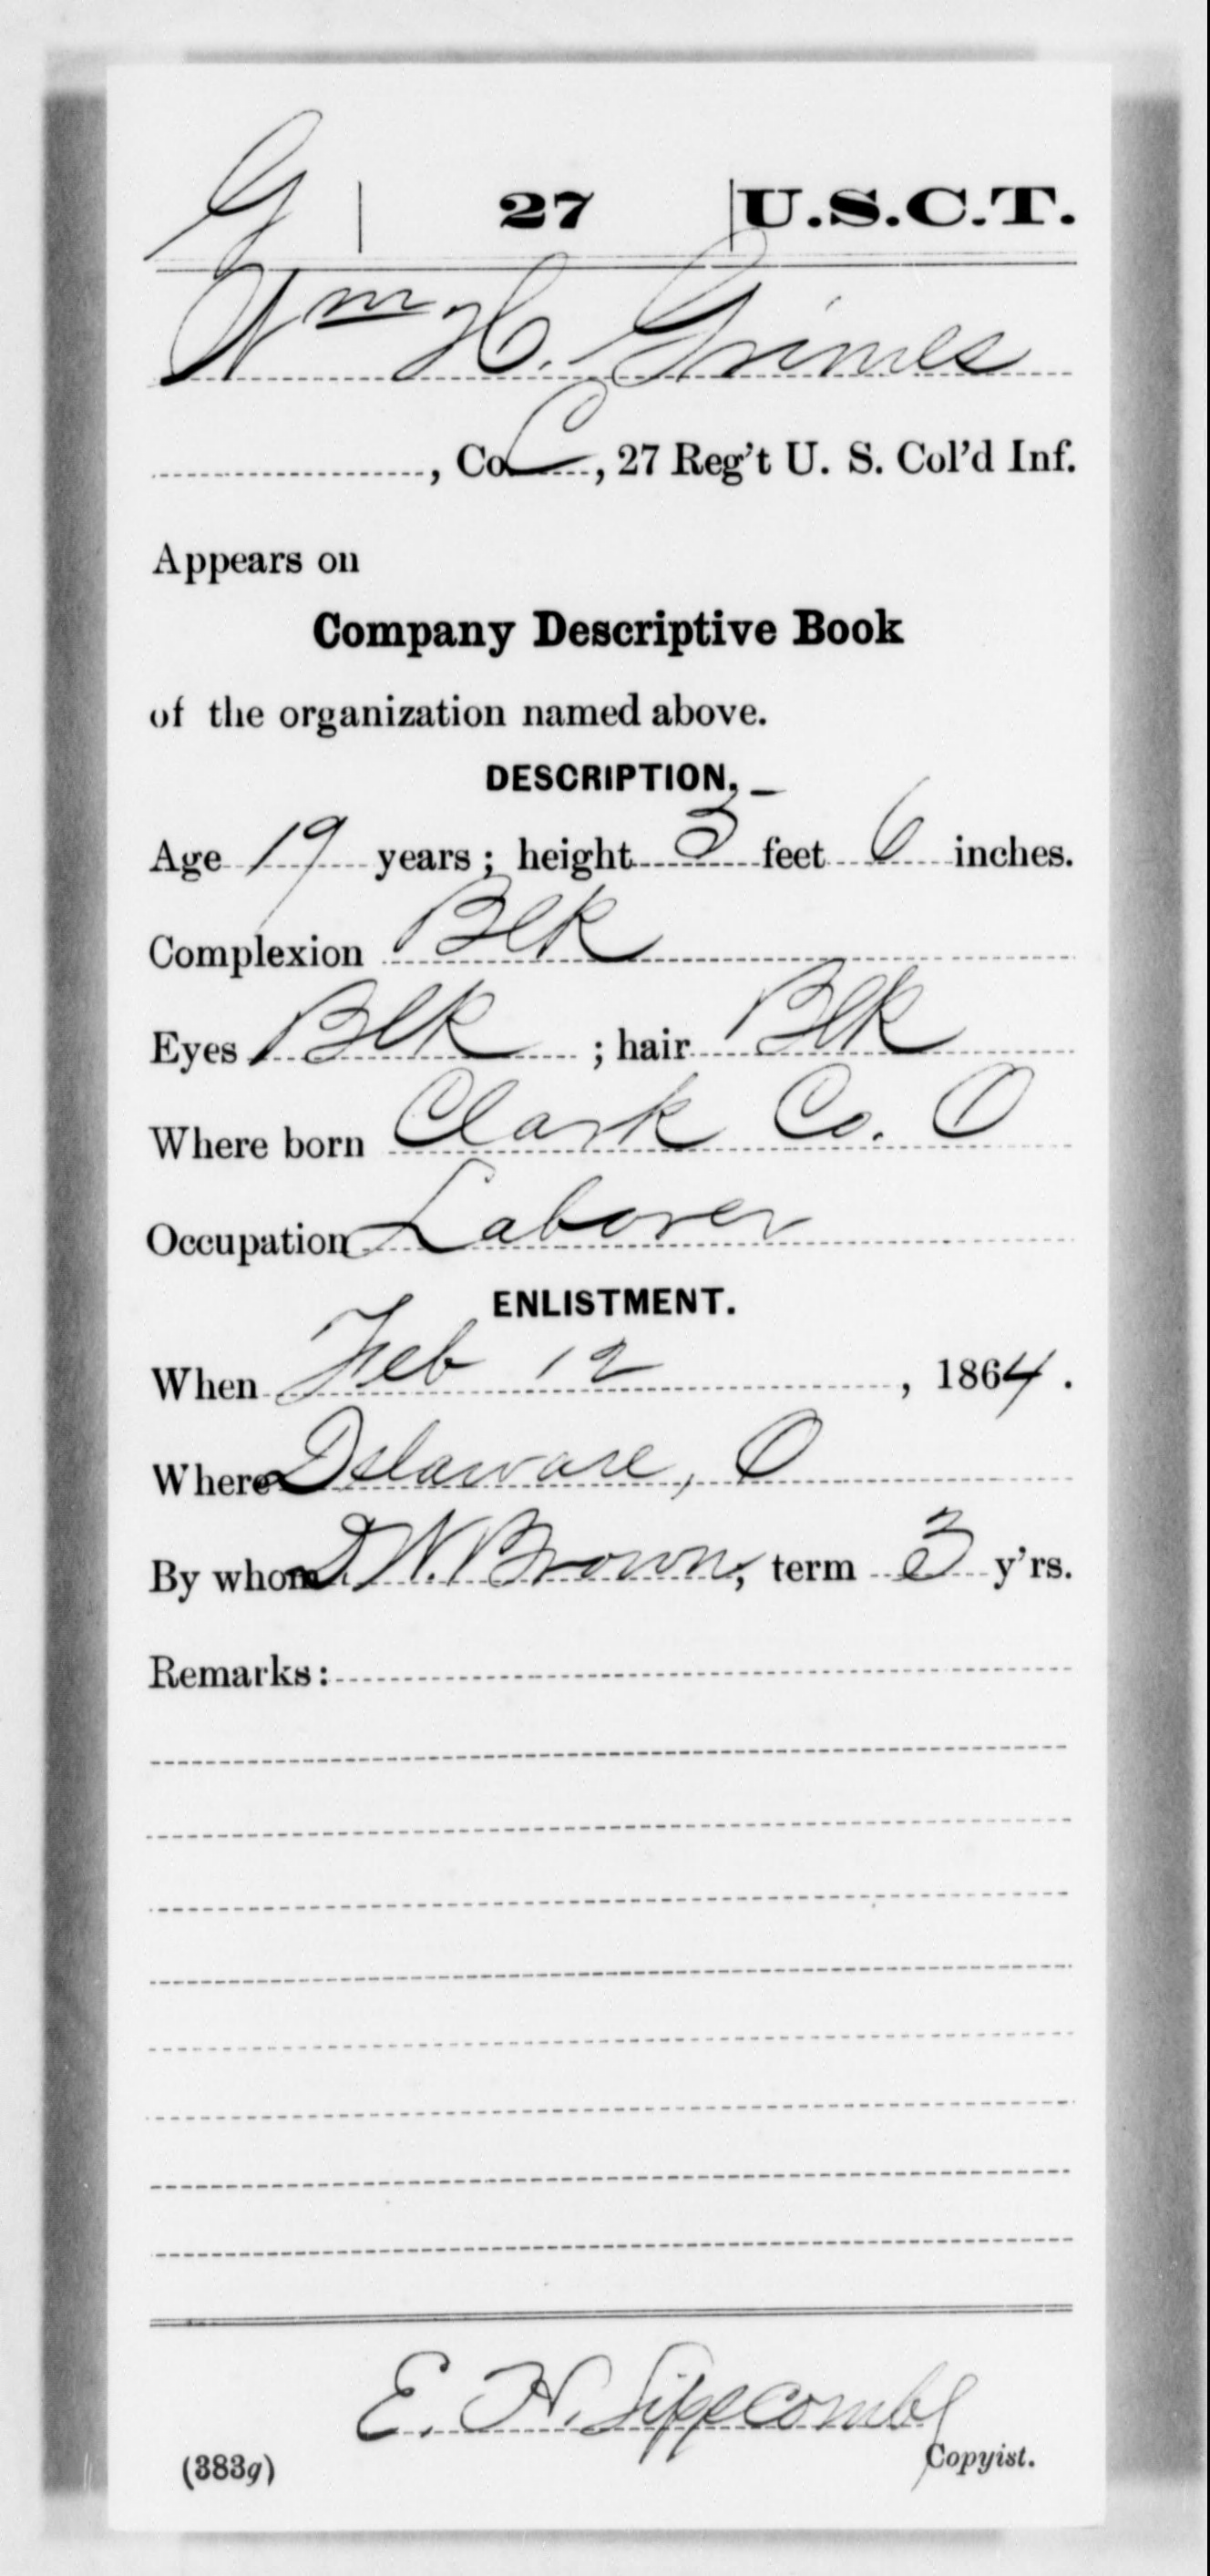 G | 27 | U.S.C.T.
Wm H. Grimes
, Co. C, 27 Reg't U. S. Col'd Inf.
Appears on
Company Descriptive Book
of the organization named above.
DESCRIPTION.
Age 19 years; height 5 feet 6 inches.
Complexion Blk
Eyes Blk; hair Blk
Where born Clark Co. O
Occupation Laborer
ENLISTMENT.
When Feb 12, 1864.
Where Delaware, O
By whom D. W. Brown; term 3 y'rs.
Remarks:
E. H.
(383g) Copyist.